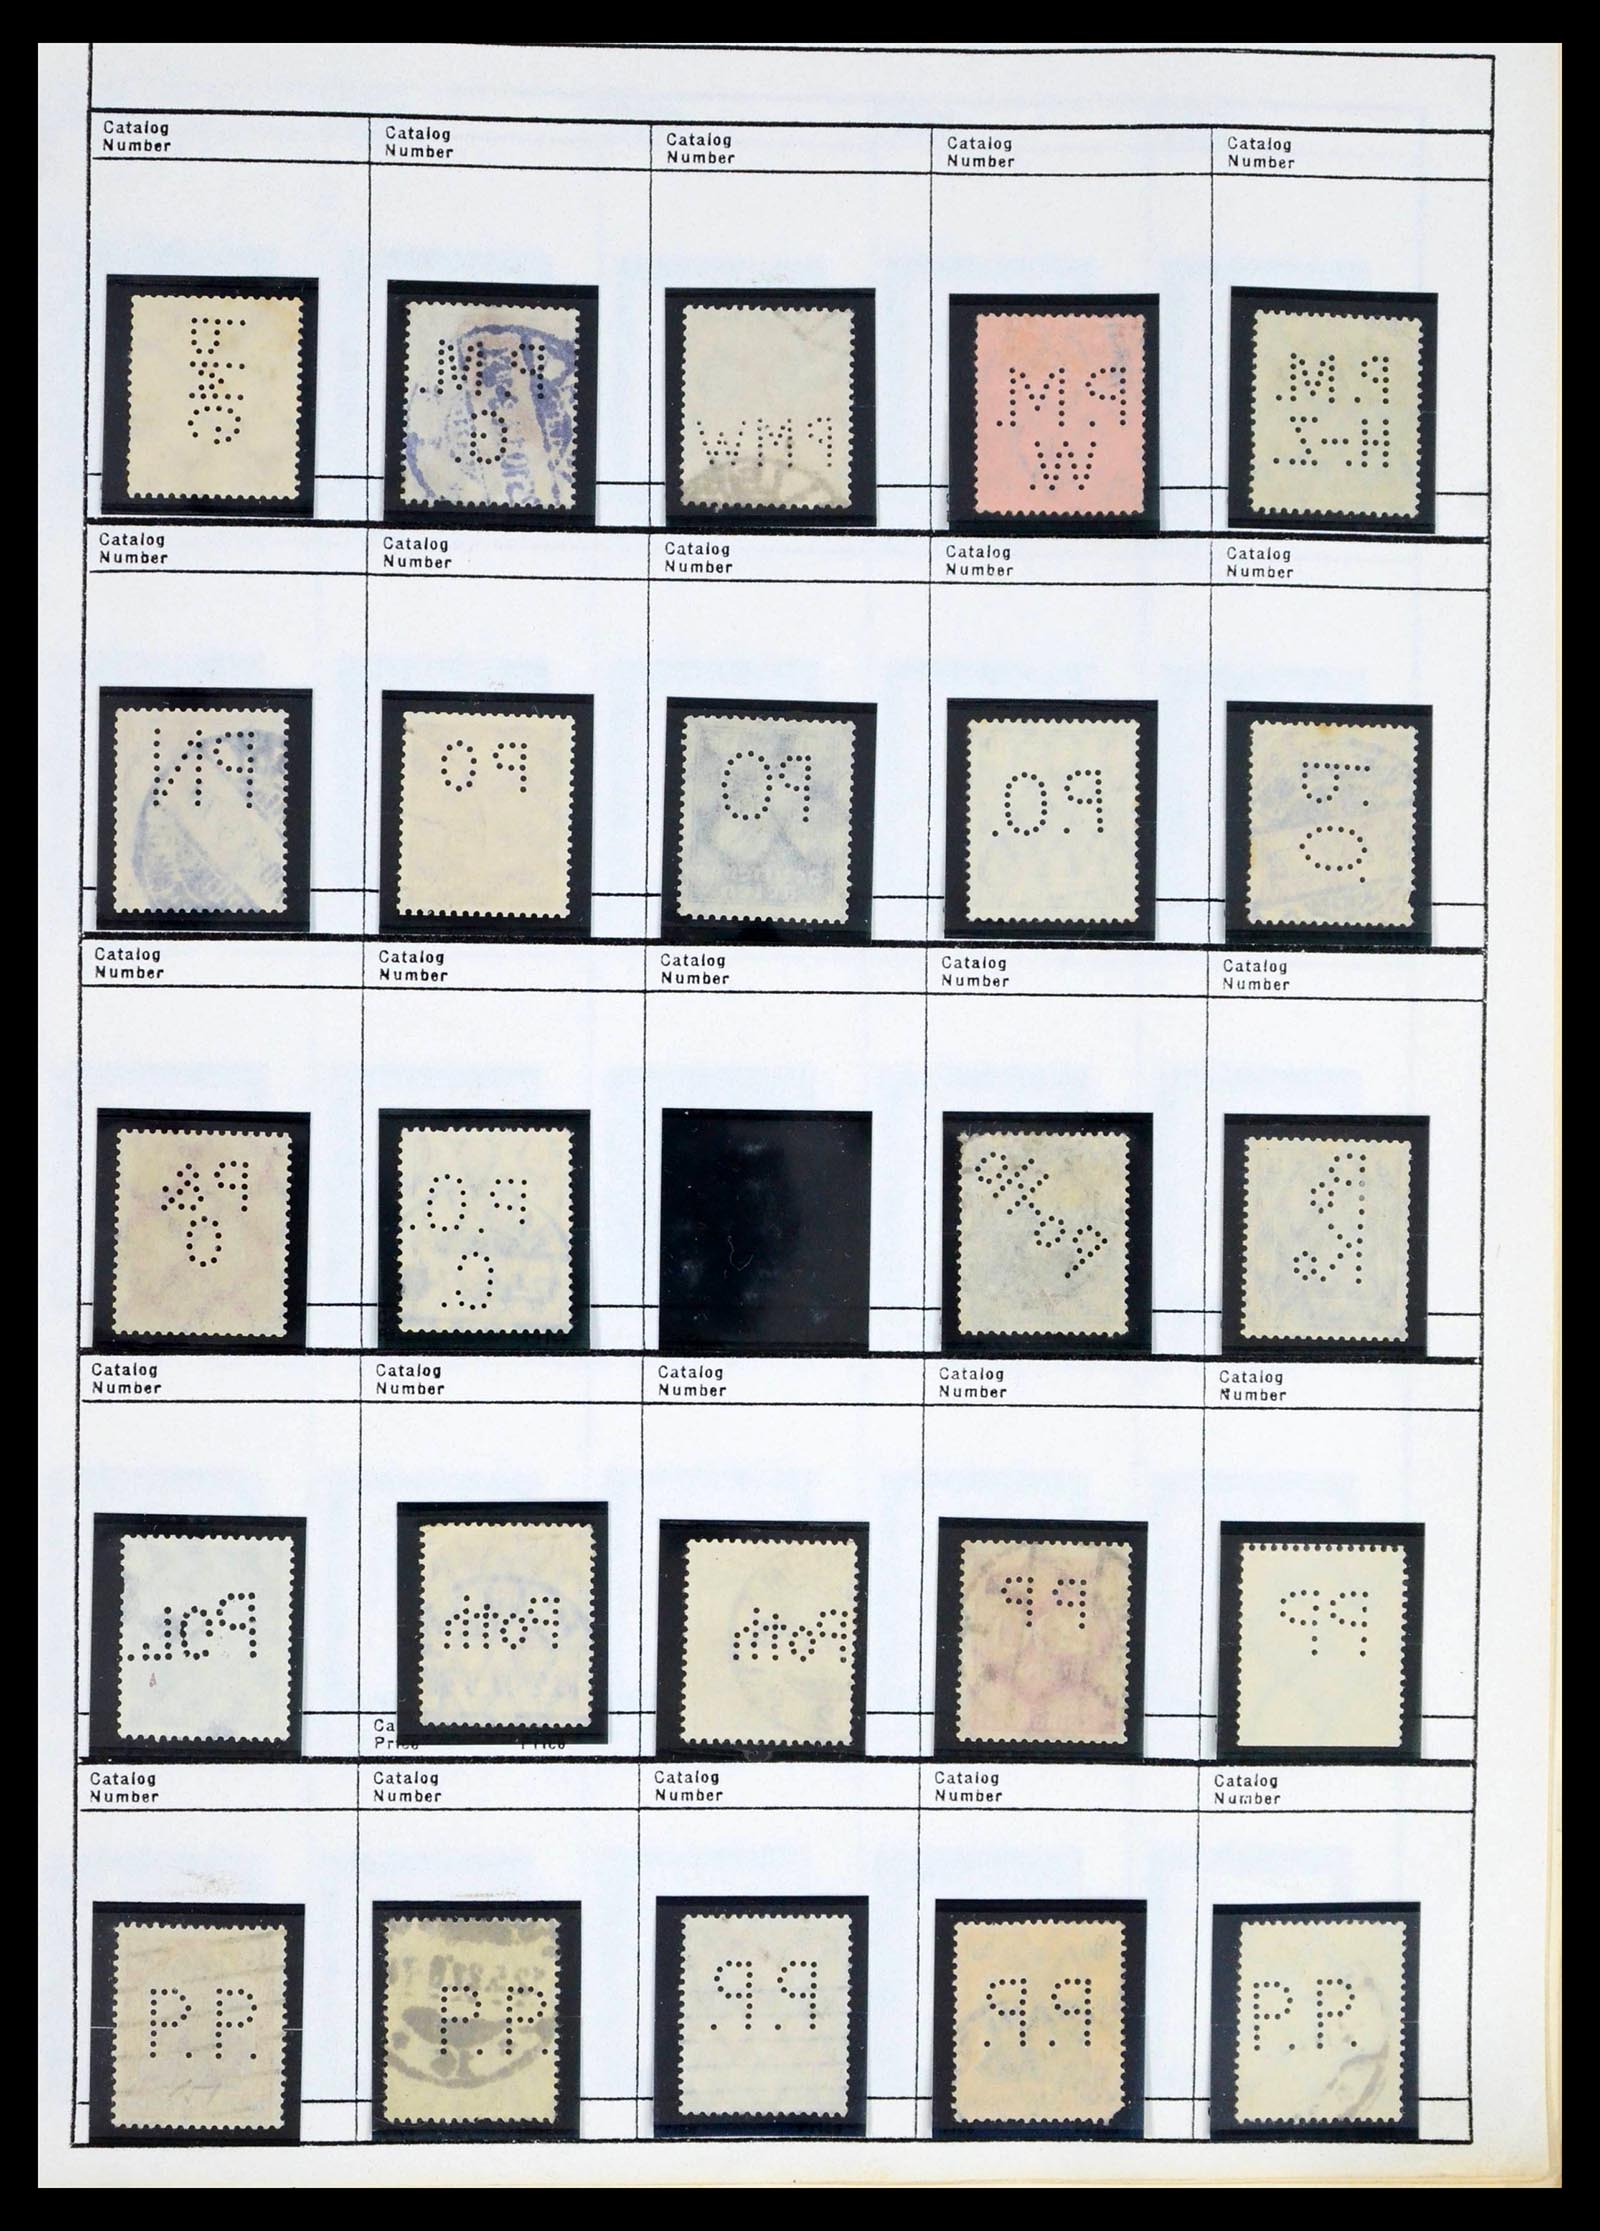 Catalog Catalog Catalog Catalog Catalog
Number Number Number Number Number
P.M. P.M. P.M.
G. WMP W H-I
Catalog Catalog Catalog Catalog Catalog
Number Number Number Number Number
PN PO PO P.O. P.O.
Catalog Catalog Catalog Catalog Catalog
Number Number Number Number Number
P.O.
C.
Catalog Catalog Catalog Catalog Catalog
Number Number Number Number Number
Poth Poth PP PP
Ca
Price Price
Catalog Catalog Catalog Catalog Catalog
Number Number Number Number Number
P.P. P.P. P.P. P.P. P.P.